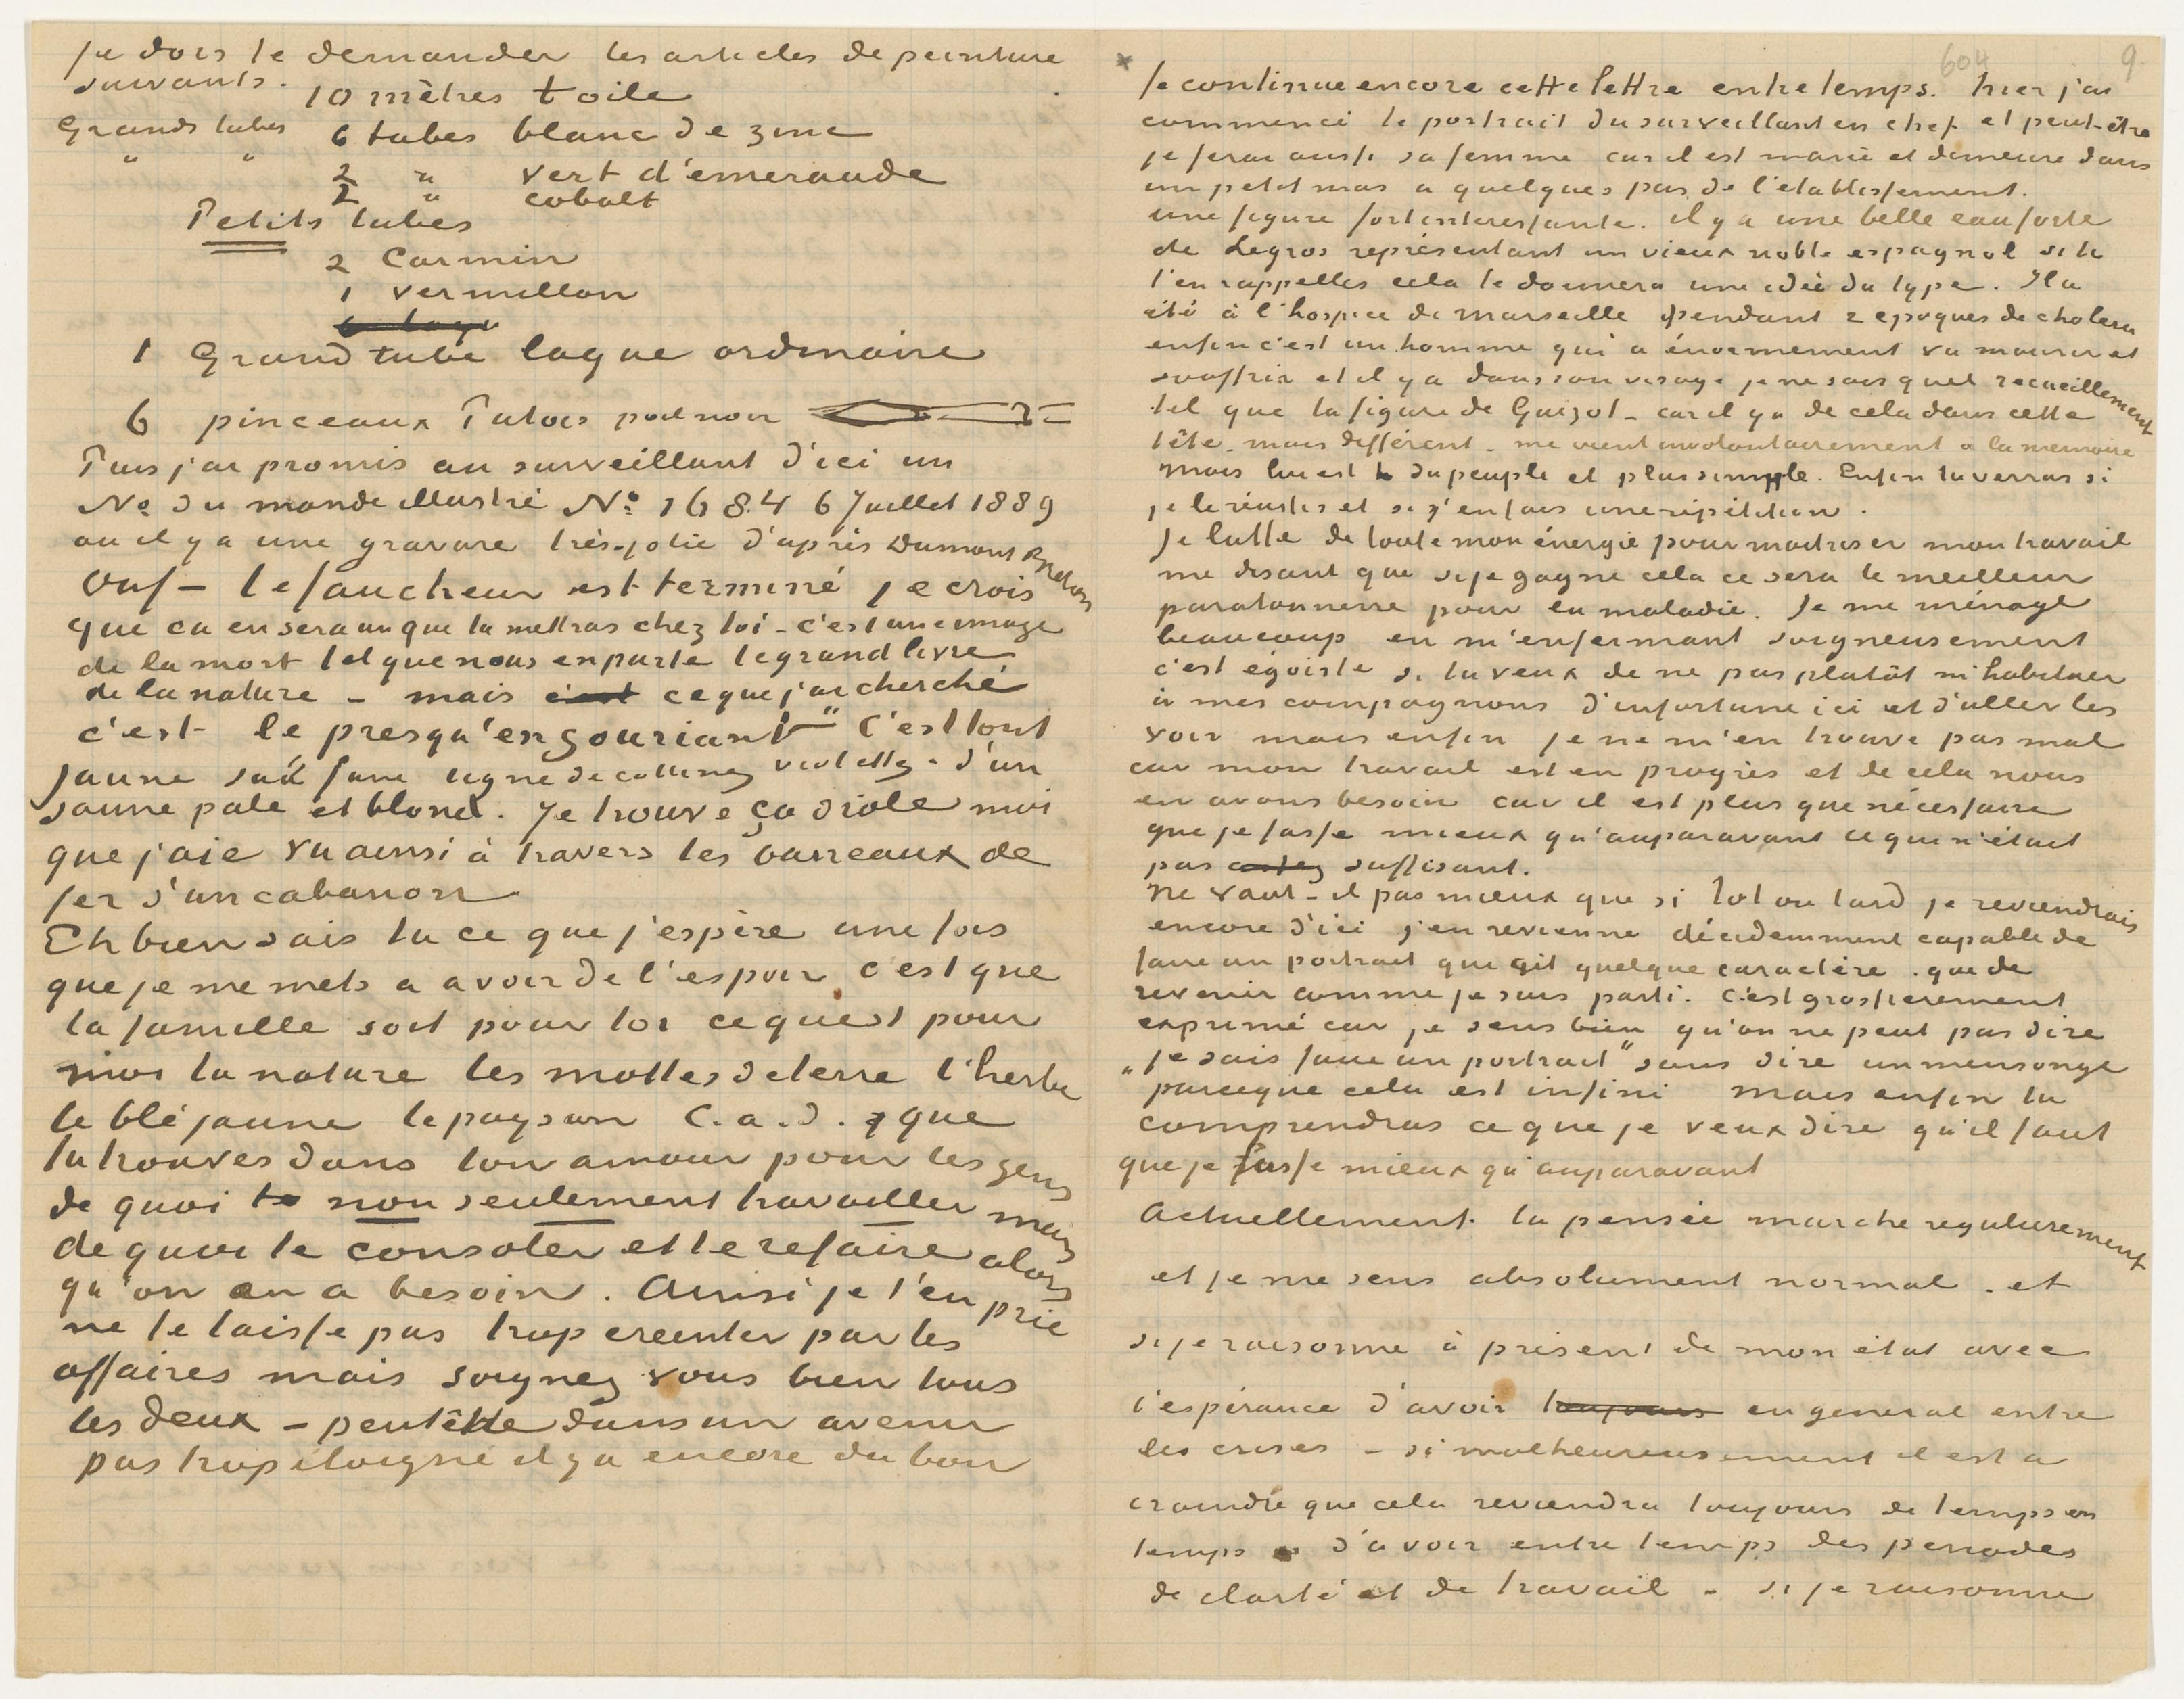 Je dois te demander les articles de peinture
suivants.
10 mètres toile
Grands tubes 6 tubes blanc de zinc
" " 2 " vert d'émeraude
2 " cobalt
Petits tubes
2 Carmin
1 vermillon
1 Grand tube laque ordinaire
6 pinceaux Putois poil noir
Puis j'ai promis au surveillant d'ici un
No du monde illustré No 1684 6 Juillet 1889
ou il y a une gravure très-jolie d'après Dumont Breton
Ouf – le faucheur est terminé je crois
que ca en sera un que tu mettras chez toi – c'est une image
de la mort tel que nous en parle le grand livre
de la nature – mais c'est ce que j'ai cherché
c'est le presqu'en souriant" C'est tout
jaune sauf une ligne de collines violettes – d'un
jaune pale et blond. Je trouve ça drole moi
que j'aie vu ainsi à travers les barreaux de
fer d'un cabanon
Eh bien sais tu ce que j'espère une fois
que je me mets a avoir de l'espoir c'est que
la famille soit pour toi ce qu'est pour
moi la nature les mottes de terre l'herbe
le blé jaune le paysan c.a.d. que
tu trouves dans ton amour pour les gens
de quoi non seulement travailler mais
de quoi te consoler et te refaire alors
qu'on en a besoin. Ainsi je t'en prie
ne te laisse pas trop ereinter par les
affaires mais soignez vous bien tous
les deux – peutêtre dans un avenir
pas trop éloigné il y a encore du bon
604 9.
x Je continue encore cette lettre entretemps. hier j'ai
commencé le portrait du surveillant en chef et peut-être
je ferai aussi sa femme car il est marié et demeure dans
un petit mas a quelques pas de l'etablissement.
une figure fort interessante. il y a une belle eau forte
de Legros représentant un vieux noble espagnol si tu
t'en rappelles cela te donnera une idée du type. Il a
été à l'hospice de Marseille pendant 2 epoques de cholera
enfin c'est un homme qui a énormement vu mourir et
souffrir et il y a dans son visage je ne sais quel recueillement
tel que la figure de Guizot – car il y a de cela dans cette
tête – mais différent – me vient involontairement a la memoire
Mais lui est du peuple et plus simple. Enfin tu verras si
je le réussis et si j'en fais une répétition.
Je lutte de toute mon énergie pour maitriser mon travail
me disant que si je gagne cela ce sera le meilleur
paratonnerre pour la maladie. Je me ménage
beaucoup en m'enfermant soigneusement
c'est égoïste si tu veux de ne pas plutôt m'habituer
à mes compagnons d'infortune ici et d'aller les
voir mais enfin je ne m'en trouve pas mal
car mon travail est en progrès et de cela nous
en avons besoin car il est plus que nécessaire
que je fasse mieux qu'auparavant ce qui n'était
pas suffisant.
Ne vaut-il pas mieux que si tot ou tard je reviendrais
encore d'ici j'en revienne décidemment capable de
faire un portrait qui ait quelque caractère. que de
revenir comme je suis parti. C'est grossierement
exprimé car je sens bien qu'on ne peut pas dire
„je sais faire un portrait" sans dire un mensonge
parceque cela est infini mais enfin tu
comprendras ce que je veux dire qu'il faut
que je fasse mieux qu'auparavant
Actuellement la pensée marche regulierement
et je me sens absolument normal. et
si je raisonne à présent de mon état avec
l'espérance d'avoir toujours en general entre
les crises – si malheureusement il est a
craindre que cela reviendra toujours de temps en
temps – d'avoir entre temps des periodes
de clarté et de travail – si je raisonne